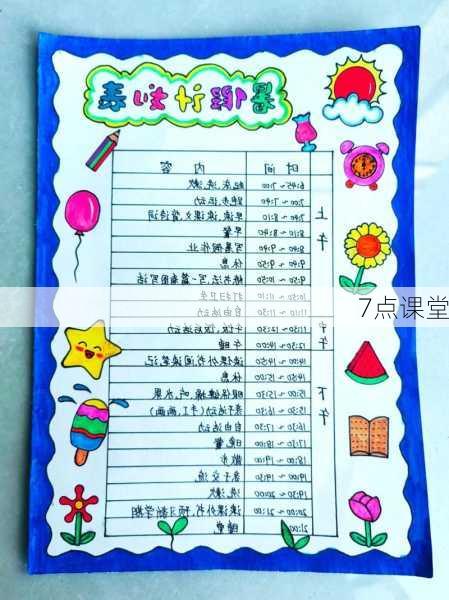 暑假计划表
时间 内容
上午
6:45~7:00 起床,洗漱
7:00~7:40 跑步运动
7:40~8:10 早读,读课文,背诗词
8:10~8:40 早餐
8:40~9:40 写暑假作业
9:40~9:50 休息
9:50~10:50 练书法,写一篇看图写话
10:50~11:10 打扫卫生
11:10~11:30 自由活动
中午
11:30~12:30 午饭,饭后活动
12:30~14:00 午睡
下午
14:00~14:50 读课外书,阅读笔记
14:50~15:00 休息
15:00~15:30 眼保健操,吃水果
15:30~16:30 亲子运动(手工,画画)
16:30~17:30 自由活动
17:30~18:00 晚餐
18:00~19:00 散步
19:00~19:30 亲子交流
19:30~20:00 洗漱
20:00~21:00 读课外书,预习新学期
21:00 睡觉
7点课堂